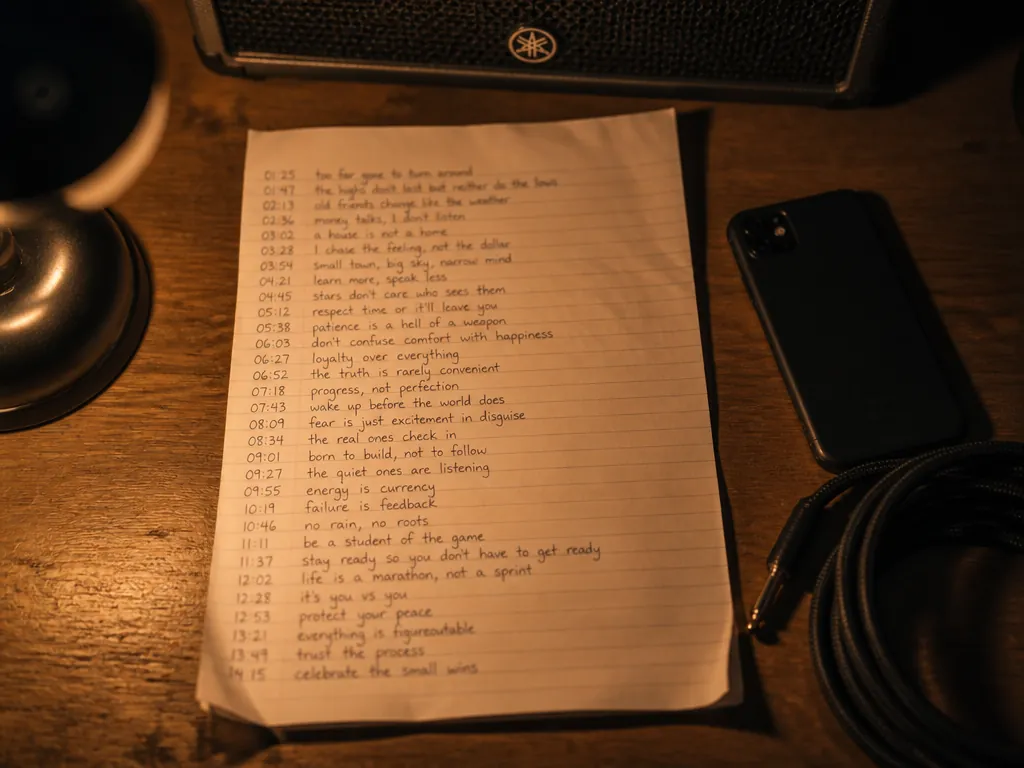 01:25 too far gone to turn around
01:47 the highs don't last but neither do the lows
02:13 old friends change like the weather
02:36 money talks, I don't listen
03:02 a house is not a home
03:28 I chase the feeling, not the dollar
03:54 small town, big sky, narrow mind
04:21 learn more, speak less
04:45 stars don't care who sees them
05:12 respect time or it'll leave you
05:38 patience is a hell of a weapon
06:03 don't confuse comfort with happiness
06:27 loyalty over everything
06:52 the truth is rarely convenient
07:18 progress, not perfection
07:43 wake up before the world does
08:09 fear is just excitement in disguise
08:34 the real ones check in
09:01 born to build, not to follow
09:27 the quiet ones are listening
09:55 energy is currency
10:19 failure is feedback
10:46 no rain, no roots
11:11 be a student of the game
11:37 stay ready so you don't have to get ready
12:02 life is a marathon, not a sprint
12:28 it's you vs you
12:53 protect your peace
13:21 everything is figureoutable
13:49 trust the process
14:15 celebrate the small wins